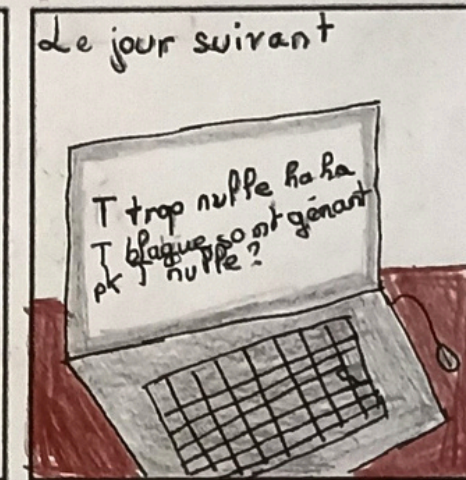 Le jour suivant
T trop nulle haha
T blague sont gênant
pk T nulle ?